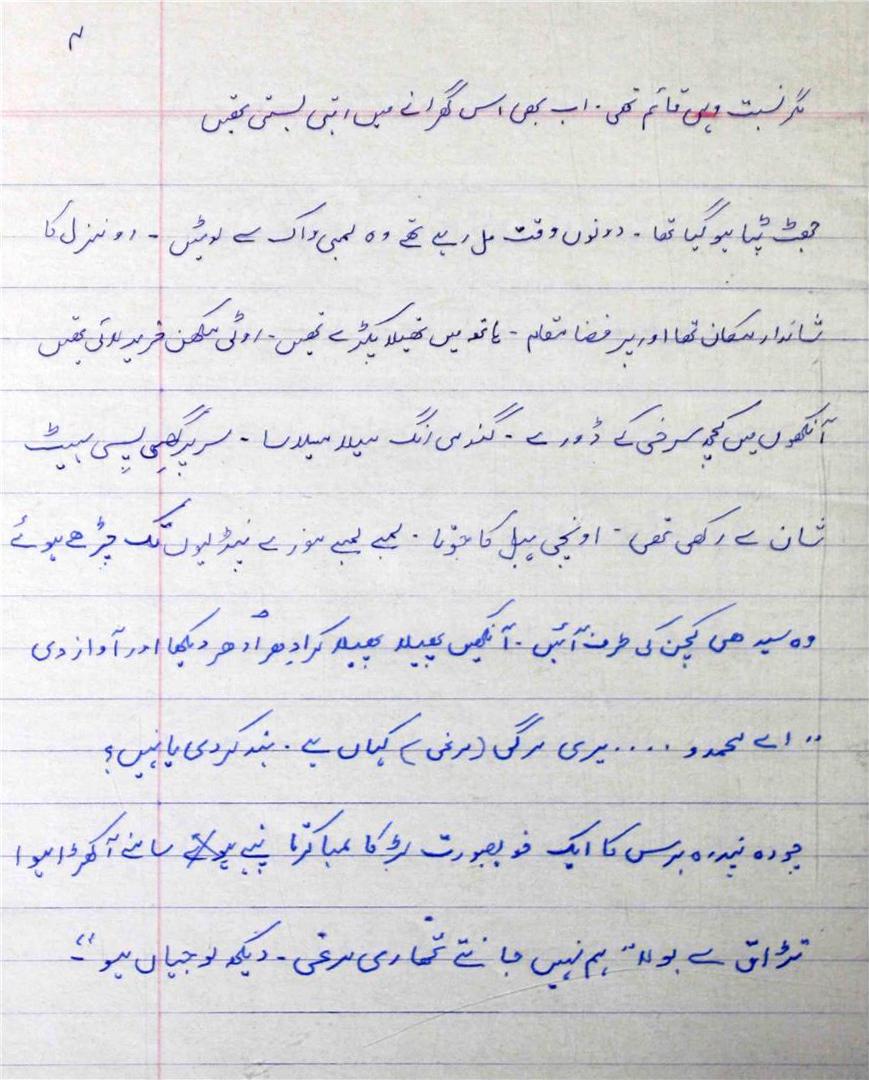 ۲
مگر نسبت وہی قائم تھی ۔ اب بھی اس گھرانے میں اتنی بستی تھیں
جھٹ پٹا ہو گیا تھا ۔ دونوں وقت مل رہے تھے وہ لمبی واک سے لوٹیں ۔ دو منزل کا
شاندار مکان تھا اور پر فضا مقام ۔ ہاتھ میں تھیلا پکڑے تھیں ۔ روٹی مکھن خرید لائی تھیں
آنکھوں میں کچھ سرخی کے ڈورے ۔ گندمی رنگ میلا میلا سا ۔ سر پر گھِسی پِسی ہیٹ
شان سے رکھی تھی ۔ اونچی ہیل کا جوتا ۔ لمبے لمبے موزے پنڈلیوں تک چڑھے ہوئے
وہ سیدھی کچن کی طرف آئیں ۔ آنکھیں پھیلا پھیلا کر اِدھر اُدھر دیکھا اور آواز دی
" اے محمدو .... میری مرگی (مرغی) کہاں ہے ۔ بند کردی یا نہیں؟
چودہ پندرہ برس کا ایک خوبصورت لڑکا لمبا کرتا پہنے سامنے آ کھڑا ہوا
تڑاق سے بولا " ہم نہیں جانتے تمھاری مرغی ۔ دیکھ لو جہاں ہو "۔